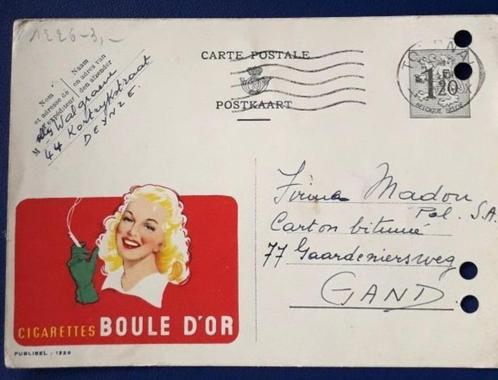 1226-3,-
CARTE POSTALE
POSTKAART
Nom
et adresse de
l'expéditeur
Naam
en adres van
den afzender
Walgraeve
44 Kortrijkstraat
DEYNZE.
1F20
BELGIQUE BELGIE
Firma Madou
Pol. S.A.
Carton bitumé
77 Gaardeniersweg
GAND
CIGARETTES BOULE D'OR
PUBLIBEL : 1226